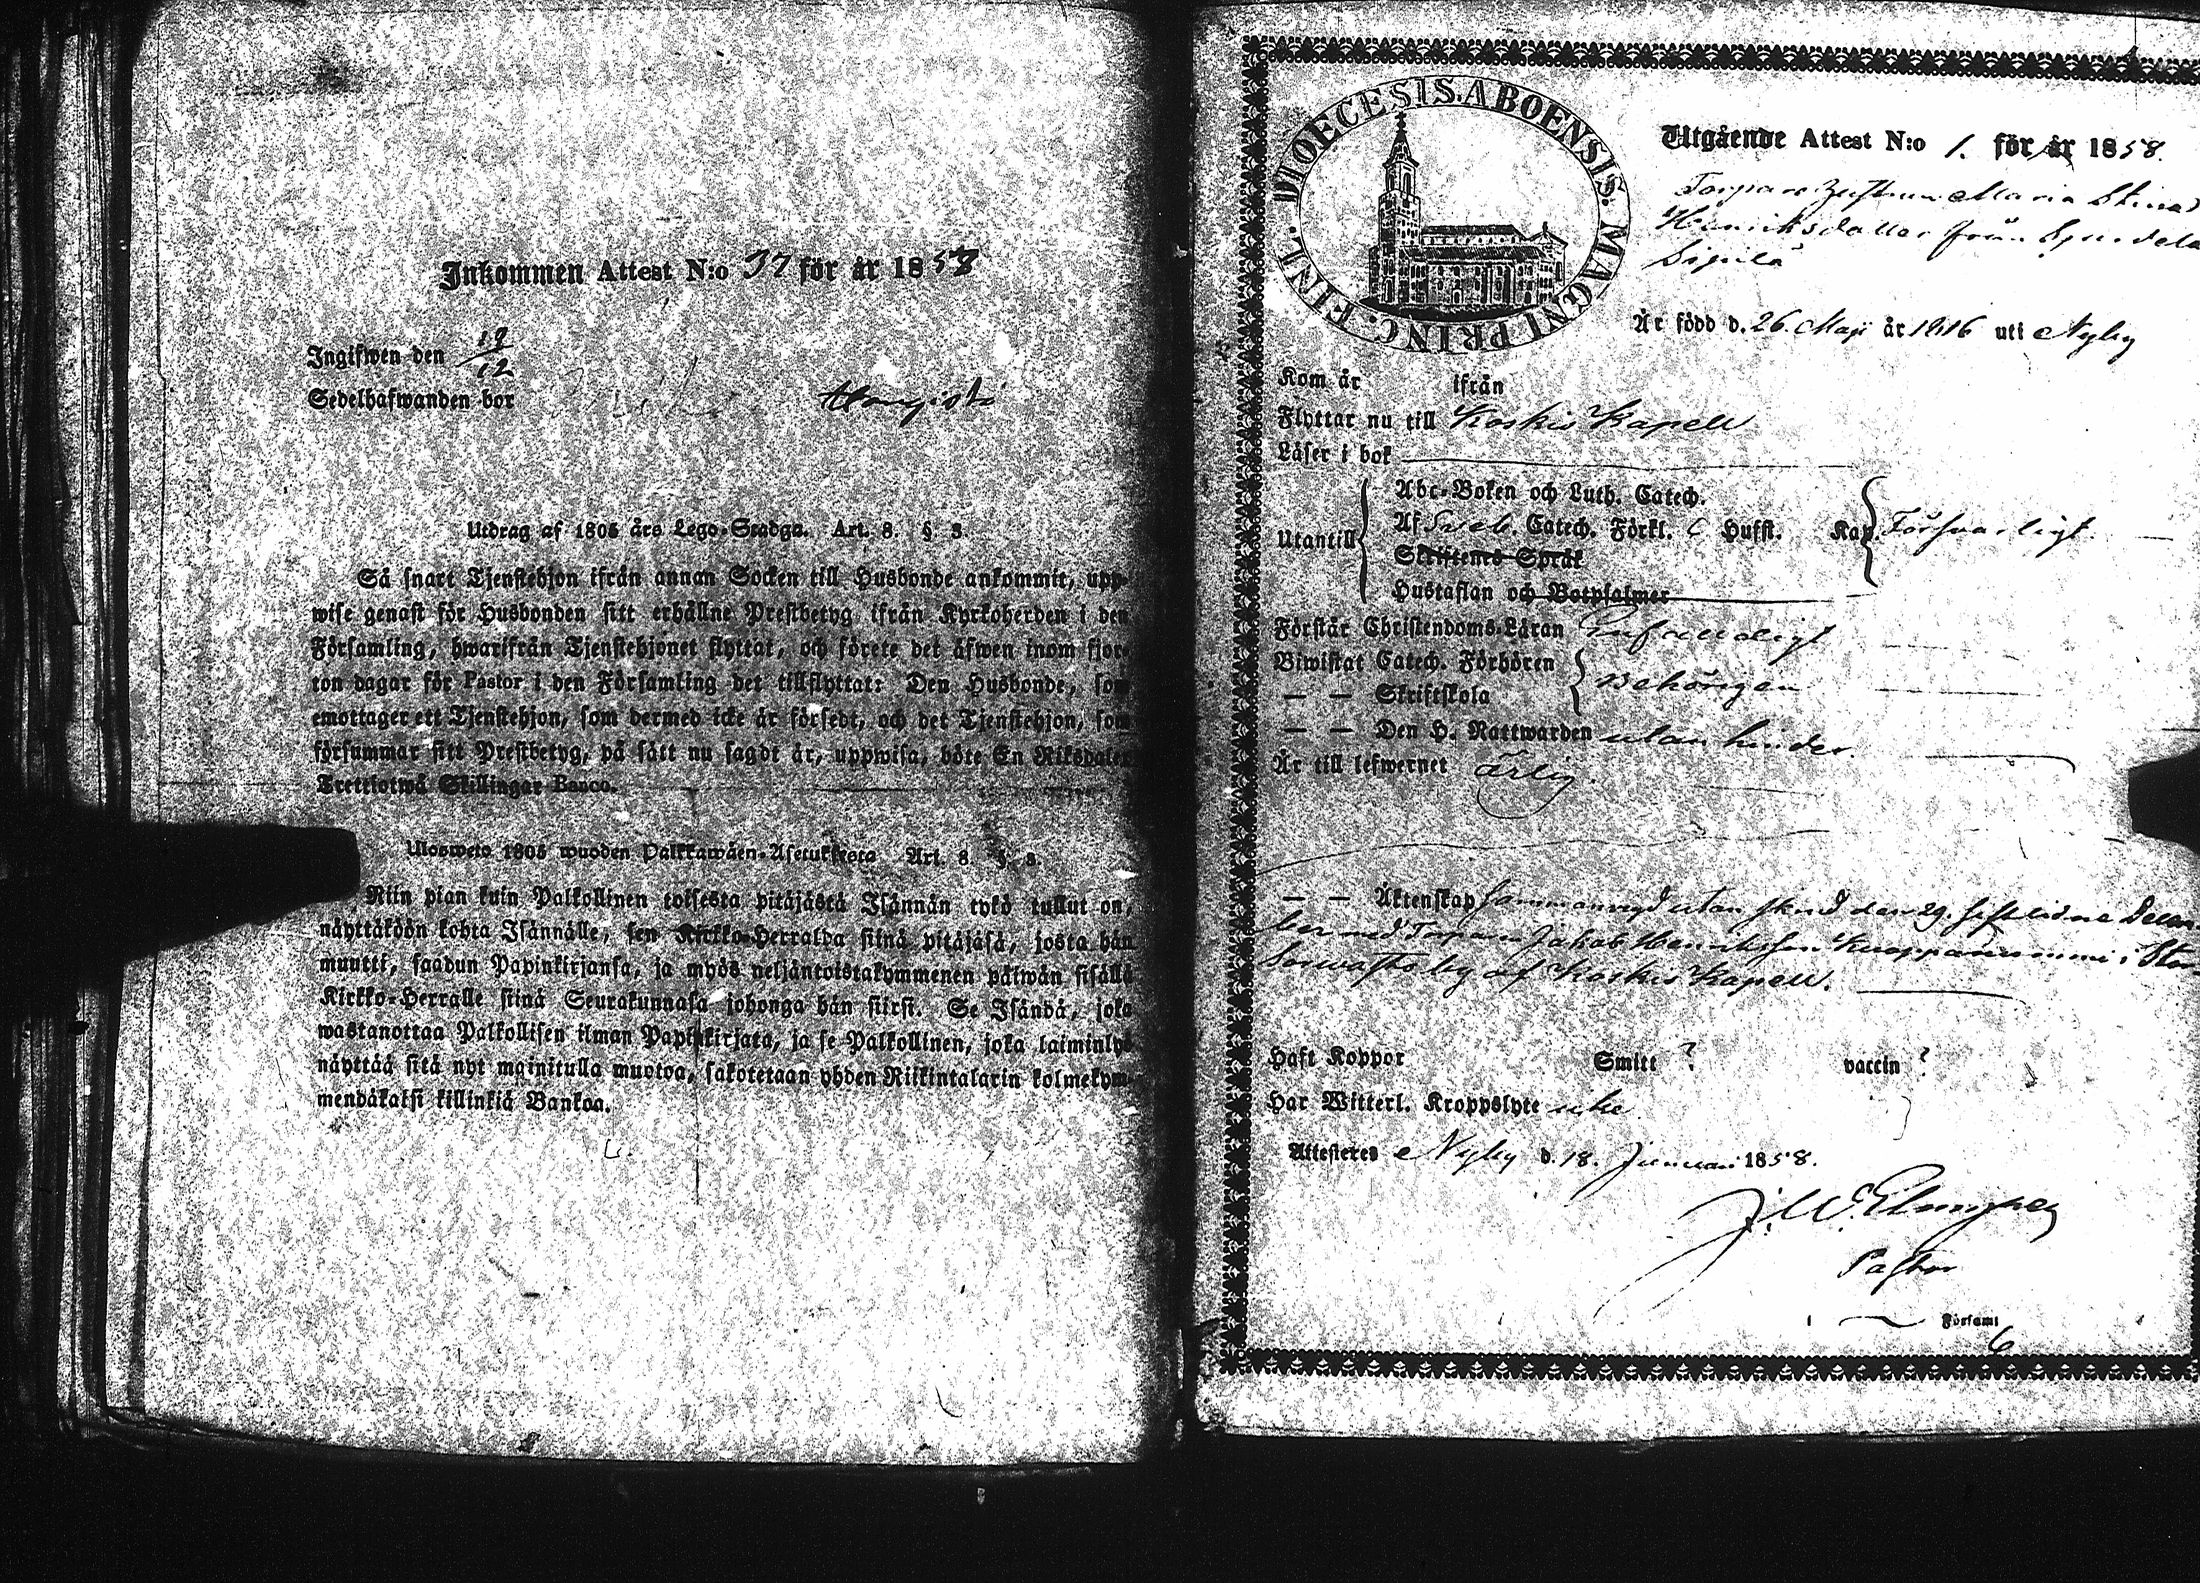 Inkommen Attest N:o 37 för år 1858
Ingifwen den 19/12
Sedelhafwanden bor
Utdrag af 1805 års Lego-Stadga. Art. 8. § 3.
Så snart Tjenstehjon ifrån annan Socken till Husbonde ankommit, upp-
wise genast för Husbonden sitt erhållne Prestbetyg ifrån Kyrkoherden i den
Församling, hwarifrån Tjenstehjonet flyttat, och förete det äfwen inom fjor-
ton dagar för Pastor i den Församling det tillflyttat: Den Husbonde, som
emottager ett Tjenstehjon, som dermed icke är försedt, och det Tjenstehjon, som
försummar sitt Prestbetyg, på sätt nu sagdt är, uppwisa, böte En Riksdaler
Trettiotwå Skillingar Banco.
Ulosweto 1805 wuoden Palkkawäen-Asetuksesta Art. 8. § 3.
Niin pian kuin Palkollinen toisesta pitäjästä Isännän tykö tullut on,
näyttäköön kohta Isännälle, sen Kirkko-Herralda siinä pitäjäsä, josta hän
muutti, saadun Papinkirjansa, ja myös neljäntoistakymmenen päiwän sisällä
Kirkko-Herralle siinä Seurakunnasa johonga hän siirsi. Se Isändä, joka
wastanottaa Palkollisen ilman Papinkirjata, ja se Palkollinen, joka laiminlyö
näyttää sitä nyt mainitulla muotoa, sakotetaan yhden Riikintalarin kolmekym-
mendäkaksi killinkiä Bankoa.
DIOECESIS. ABOENSIS. MAGNI PRINC. FINL.
Utgående Attest N:o 1. för år 1858.
Maria Stina
Henriksdotter från
Är född d. 26 Maji år 1816 uti Nyby
Kom år ifrån
Flyttar nu till Koskis Kapell
Läser i bok
Utantill
Abc-Boken och Luth. Catech.
Af Sveb. Catech. Förkl. Hufst. Kap. Försvarligt
Skriftenes Språk
Hustaflan och Botpsalmer
Förstår Christendoms-Läran
Biwistat Catech. Förhören
— — Skriftskola Behörigen
— — Den H. Nattwarden utan hinder
Är till lefwernet ärlig.
— — Äktenskap sammanvigd utan skrud den 29. sistlidne Decem-
ber med Torparen Jakob Henriksson i
by af Koskis Kapell.
Haft Koppor Smitt ? vaccin ?
Har Witterl. Kroppslyte icke
Attesteres Nyby d. 18. Januari 1858.
Pastor
Församl
6